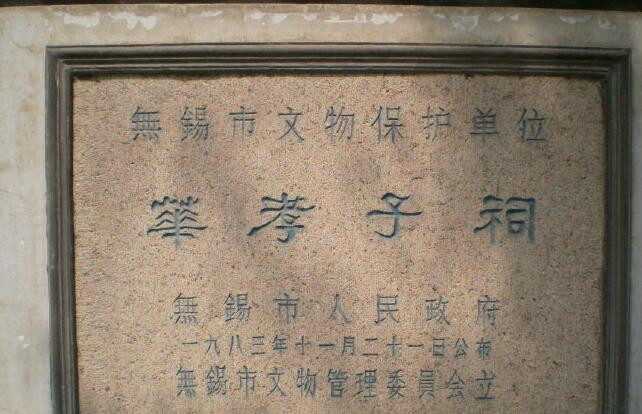 無錫市文物保护单位
華孝子祠
無錫市人民政府
一九八三年十一月二十一日公布
無錫市文物管理委員会立